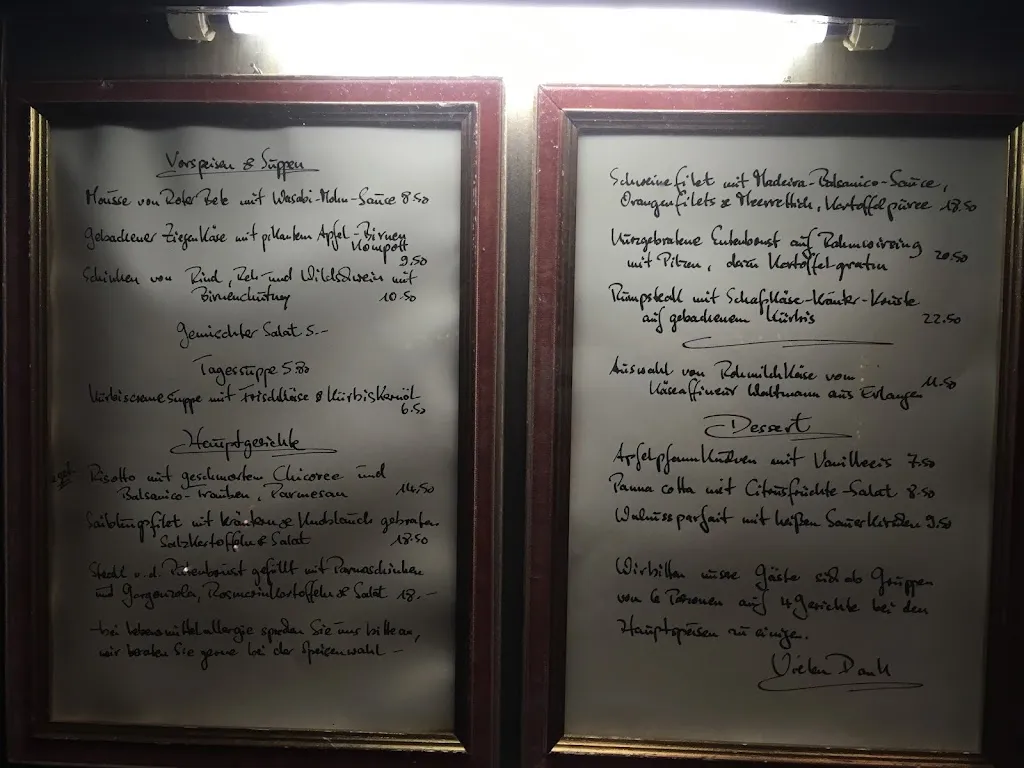 Vorspeisen & Suppen
Mousse von Roter Bete mit Wasabi-Mohn-Sauce 8.50
Gebackener Ziegenkäse mit pikantem Apfel-Birnen
Kompott
9.50
Schinken von Rind, Reh- und Wildschwein mit
Birnenchutney 10.50
Gemischter Salat 5.-
Tagessuppe 5.80
Kürbiscremesuppe mit Frischkäse & Kürbiskernöl
6.50
Hauptgerichte
Risotto mit geschmortem Chicoree und
Balsanico-Trauben, Parmesan 14.50
Saiblingsfilet mit Kräutern & Knoblauch gebraten.
Salzkartoffeln & Salat 18.50
Steak v. d. Putenbrust gefüllt mit Parmaschinken
und Gorgonzola, Rosmarinkartoffeln & Salat 18.-
- bei Lebensmittelallergie sprechen Sie uns bitte an,
wir beraten Sie gerne bei der Speisenwahl -
Schweinefilet mit Madeira-Balsamico-Sauce,
Orangenfilets & Meerrettich, Kartoffelpüree 18.50
Kurzgebratene Entenbrust auf Rahmwirsing
mit Pilzen, dazu Kartoffel-gratin 20.50
Rumpsteak mit Schafskäse-Kräuter-Kruste
auf gebackenem Kürbis 22.50
Auswahl von Rohmilchkäse vom
Käseaffineur Waltmann aus Erlangen 11.50
Dessert
Apfelpfannkuchen mit Vanilleeis 7.50
Panna cotta mit Citrusfrüchte-Salat 8.50
Walnussparfait mit heißen Sauerkirschen 9.50
Wir bitten unsere Gäste sich ab Gruppen
von 6 Personen auf 4 Gerichte bei den
Hauptspeisen zu einigen.
Vielen Dank